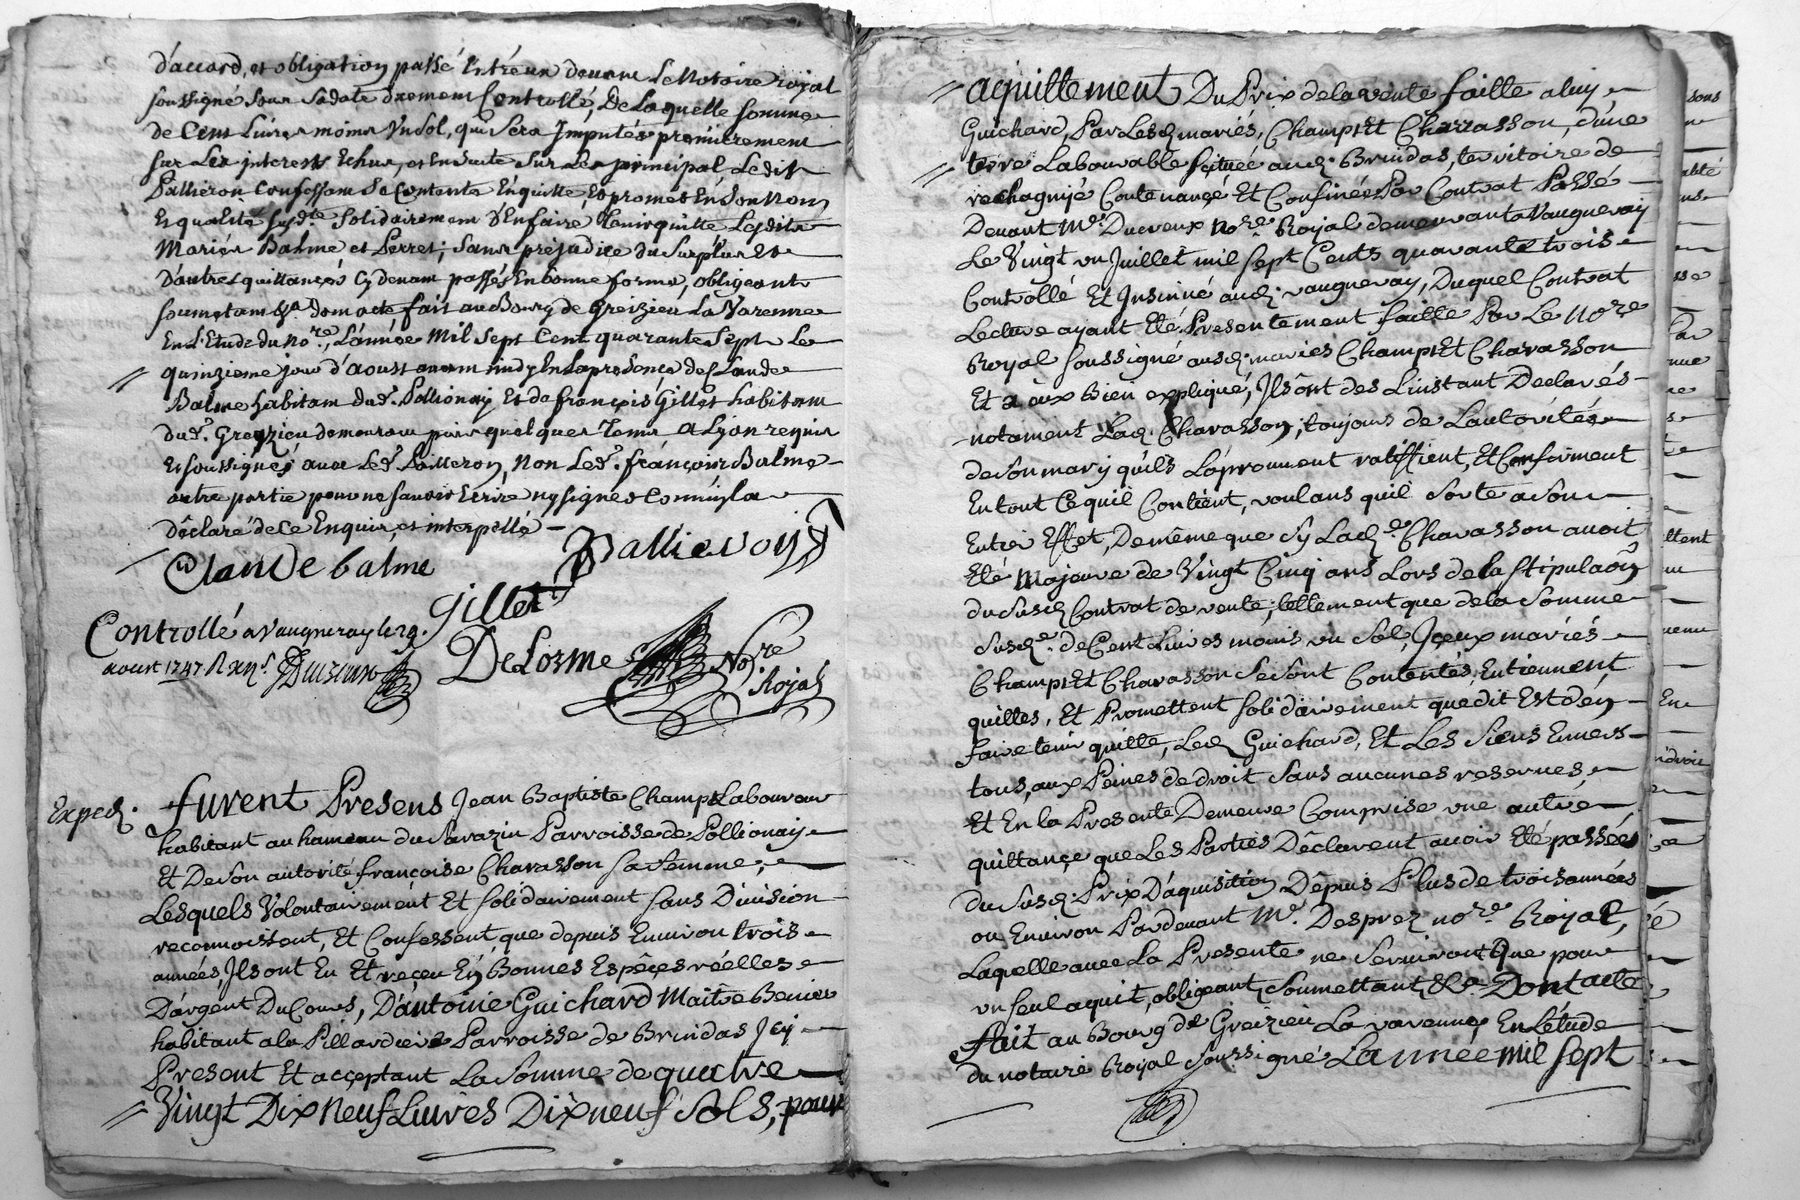 d'accord, et obligation passé Entréux devant Le Notoire royal
soussigné sous sadate duement Controllé, De Laquelle somme
de Cent Livres moins Un sol, qui sera Imputés premierement
sur Les interest Echus, et Ensuite sur Le principal, Ledit
Pallieron Confessant se Contente Enquitte, Et promet En son Nom
Et qualité susdte solidairement d'En faire tenir quitte Lesdits
Mariés Balme et Perret; sans préjudice du surplus Et
D'autres quittances Cy devant passés En bonne forme, obligeant
soumetant &a dont acte, fait au Bourg de Greizieu La Varenne
En L'Etude du Nore, L'année Mil sept Cent quarante sept Le
quinzieme jour d'aoust avant midy En la presence de Claude
Balme habitant dud. Pollionay Et de françois Gillet habitant
dud. Greyzieu demeurant puis quelques Tems a Lyon requis
Et soussignés avec Led. Pallieron, Non Led. françois Balme
autre partie pour ne savoir Ecrire ny signer Comme il a
Déclaré de Ce Enquis, et interpellé
Claude balme
Pallieron
Gillet
Controllé a Vaugneray le 29.
aoust 1747 R
DeLorme Nore
Royal
Exped.
furent Presens Jean Baptiste Champt Laboureur
habitant au hameau du Sarazin Parroisse de Pollionaÿ
Et De son autorité françoise Charasson sa femme;
Lesquels Volontairement Et solidairement sans Division
reconnoissent, Et Confessent que depuis Environ trois
années, Ils ont Eu Et reçeu En Bonnes Espêçes réelles
D'argent Du Cours, D'antoine Guichard Maitre
habitant a la Pillardiere Parroisse de Brindas Jcy
Present Et acçeptant La somme de quatre
Vingt Dix neuf Livres Dixneuf sols, pour
aquittement Du Prix de la vente faitte a luy
Guichard, Par Lesd mariés, Champt Et Charasson, d'une
terre Labourable scituée aud. Brindas, territoire de
rechagnié Contenancé Et Confinée Par Contrat Passé
Devant Me. Ducreux nore Royal demeurant a Vaugneray
Le Vingt un Juillet mil sept Cents quarante trois
Controllé Et Insinué aud. vaugneray, Duquel Contrat
Lecture ayant Eté Presentement faitte Par Le Nore
Royal soussigné ausd. mariés Champt Et Charasson
Et a eux Bien expliqué, Ils ônt des L'instant Declarés
notament Lad. Charasson, toujours de L'autorité
de son mary qu'ils L'éprouvent ratiffient, Et Confirment
En tout Ce quil Contient, voulans quil sorte a son
Entier Effet, De même que sy Lad.e Charasson avoit
Eté Majeure de Vingt Cinq ans Lors de la stipulaôn
du susd. Contrat de vente; tellement que de la somme
susd.e de Cent Livres moins un sol, Jçeux mariés
Champt Et Charasson se sont Contentés, En tiennent
quittes, Et Promettent solidairement que dit Est d'en
faire tenir quitte, Led. Guichard, Et Les siens Envers
tous, aux Peines de droit sans aucunes reserves
Et En la Presente Demeure Comprise une autre
quittançe que Les Parties Dêclarent avoir Eté passées
du susd. Prix D'aquisition Dêpuis Plus de trois années
ou Environ Pardevant Me. Desprez nore. Royal,
Laquelle avec La Presente ne serviront Que pour
un seul aquit, obligeant, soumettant, &a. Dont acte
fait au Bourg de Greizieu La varenne, En L'étude
du notaire Royal soussigné L'année mil sept